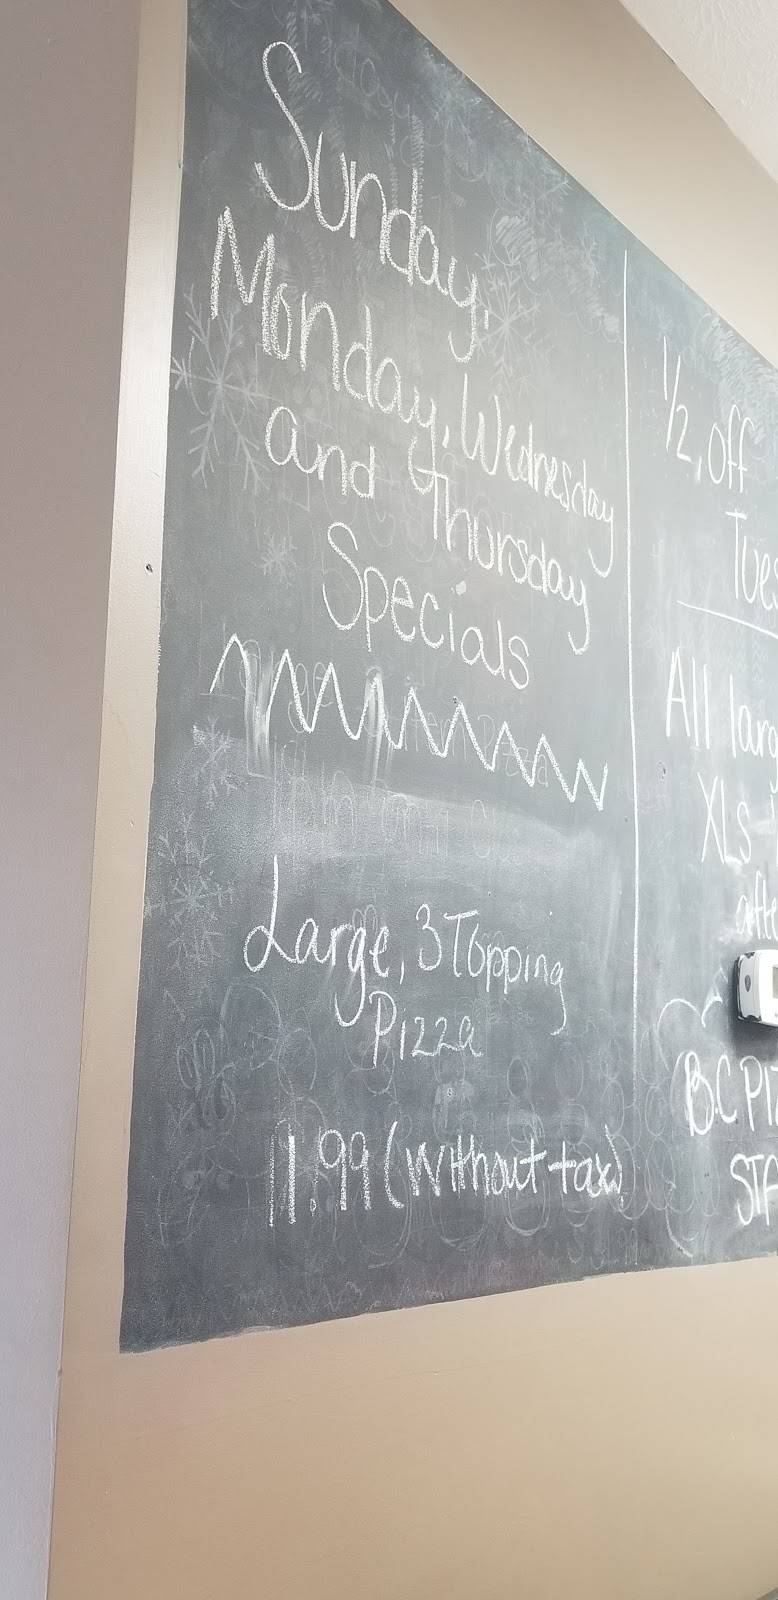 Sunday,
Monday, Wednesday
and Thursday
Specials
Large, 3 Topping
Pizza
11.99 (without tax)
1/2 off
All
XLs
B.C